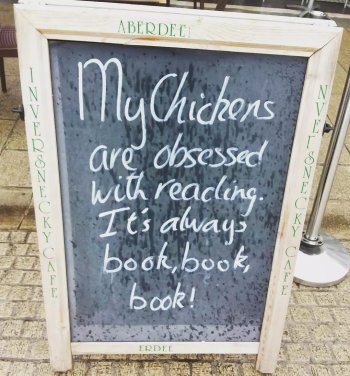 ABERDEE
INVERSNECKY CAFE
My Chickens
are obsessed
with reading.
It's always
book, book,
book!
INVERSNECKY CAFE
ERDEE